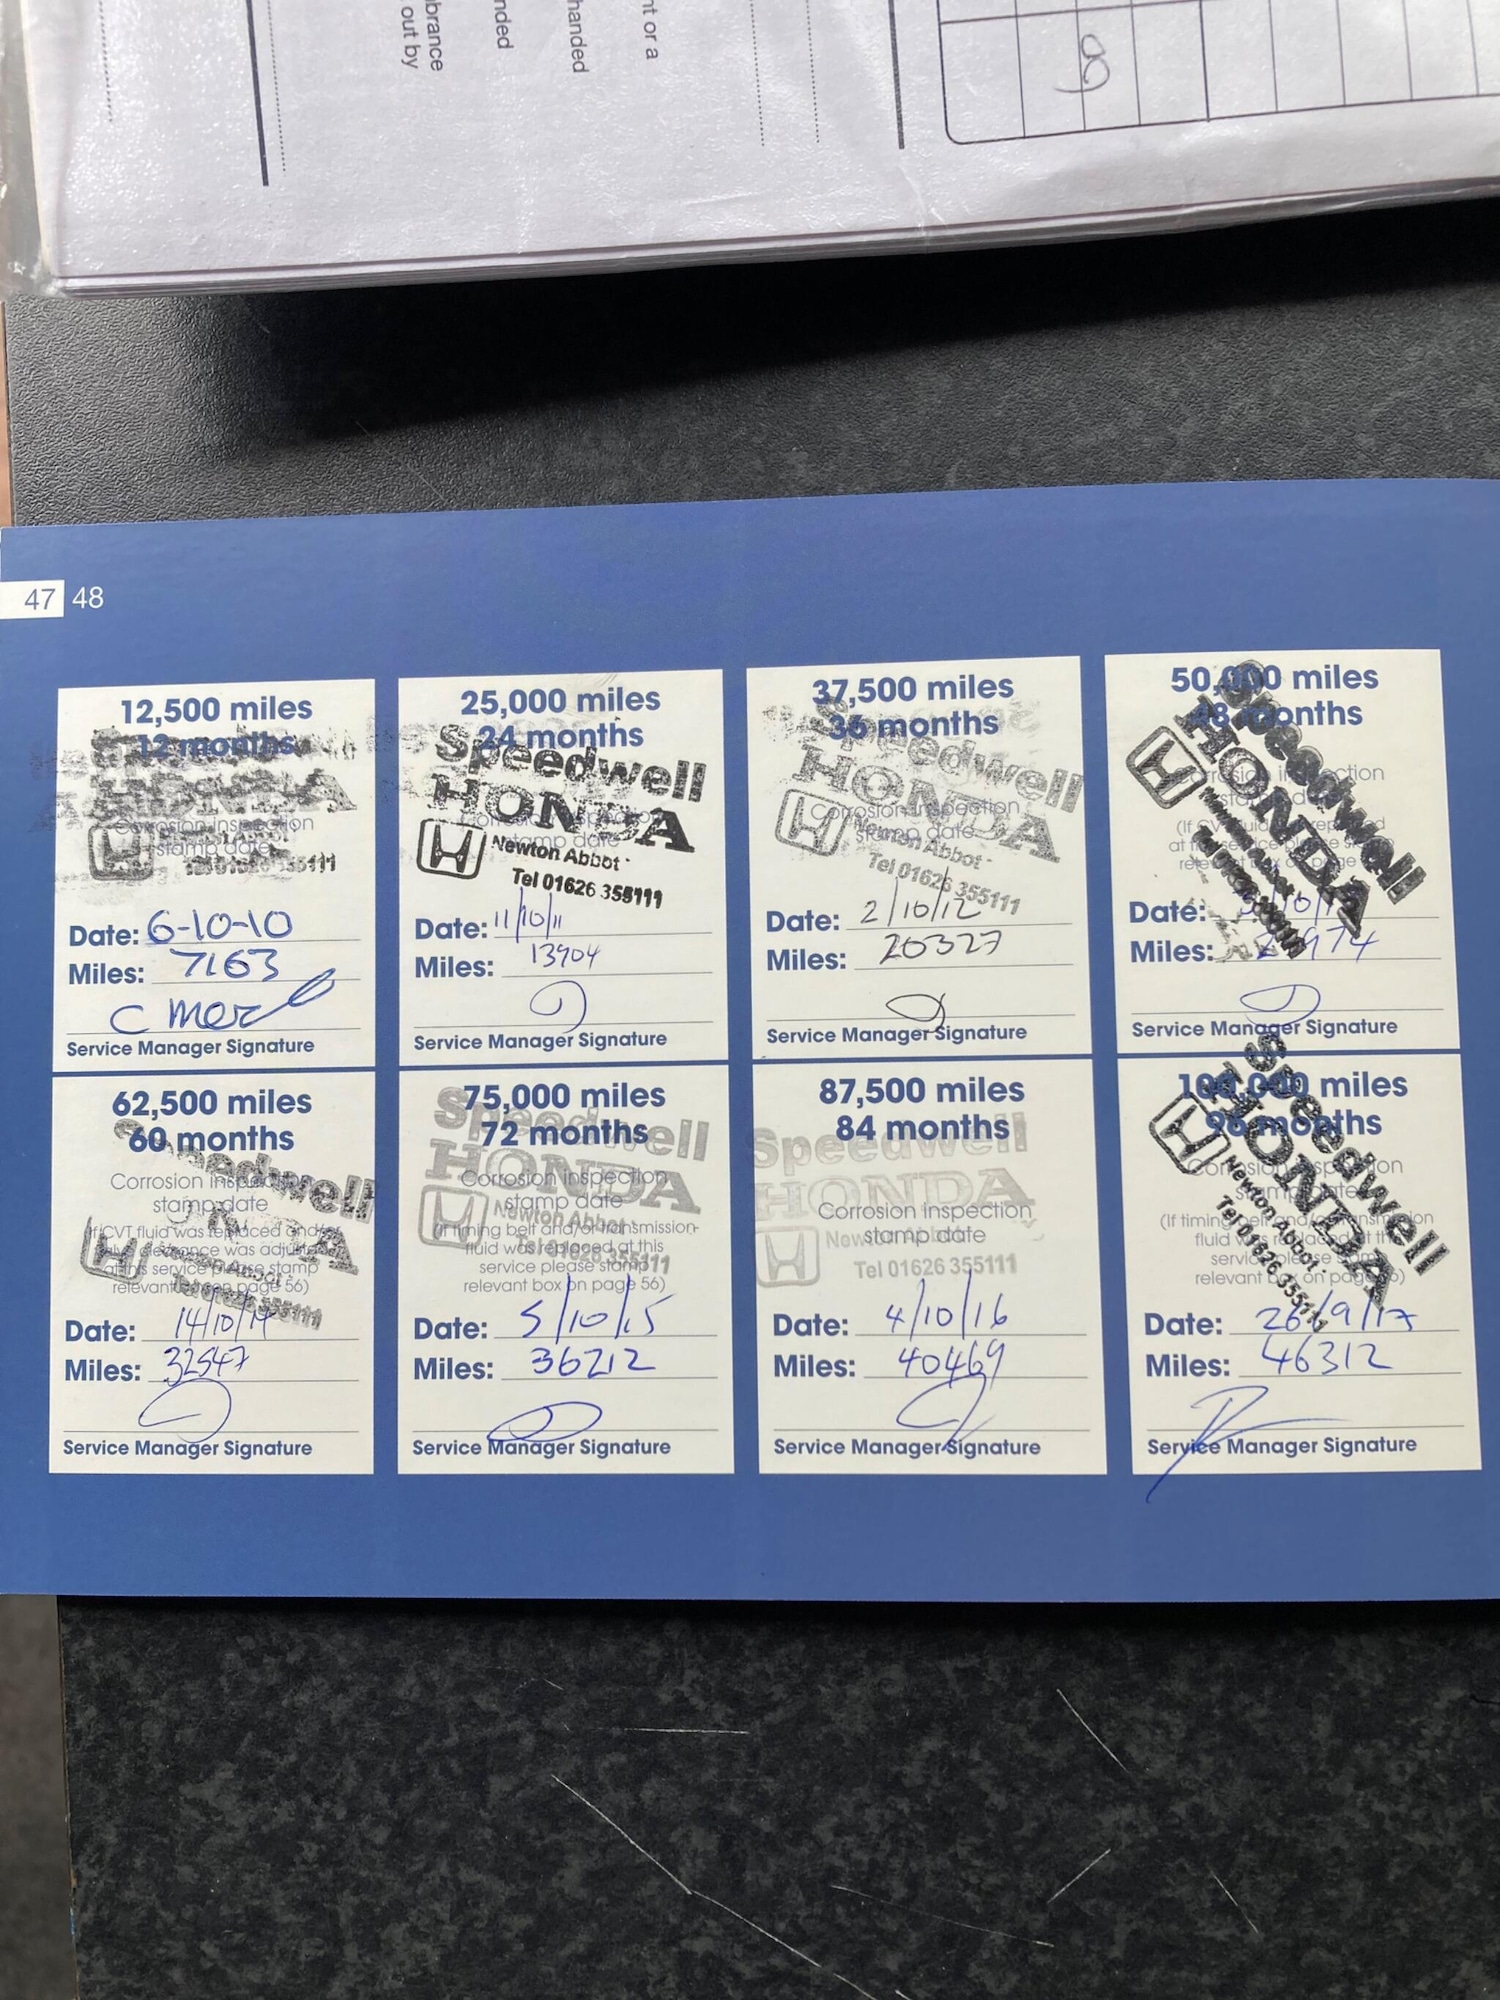 nt or a
handed
nded
brance
out by
47 48
12,500 miles
12 months
Corrosion inspection
stamp date
Date: 6-10-10
Miles: 7163
Service Manager Signature
25,000 miles
24 months
Speedwell
HONDA
stamp date
Newton Abbot -
Tel 01626 355111
Date: 11/10/11
Miles: 13904
Service Manager Signature
37,500 miles
36 months
Speedwell
HONDA
Corrosion inspection
stamp date
Newton Abbot -
Tel 01626 355111
Date: 2/10/12
Miles: 20327
Service Manager Signature
50,000 miles
48 months
Speedwell
HONDA
Date:
Miles:
Service Manager Signature
62,500 miles
60 months
Speedwell
HONDA
Corrosion inspection
stamp date
(If CVT fluid was replaced and/or
valve clearance was adjusted
at this service please stamp
relevant box on page 56)
Date: 14/10/14
Miles: 32547
Service Manager Signature
75,000 miles
72 months
Speedwell
HONDA
Corrosion inspection
stamp date
Newton Abbot
(If timing belt and/or transmission
fluid was replaced at this
service please stamp
relevant box on page 56)
Tel 01626 355111
Date: 5/10/15
Miles: 36212
Service Manager Signature
87,500 miles
84 months
Speedwell
HONDA
Corrosion inspection
stamp date
Newton Abbot
Tel 01626 355111
Date: 4/10/16
Miles: 40469
Service Manager Signature
100,000 miles
96 months
Speedwell
HONDA
Newton Abbot -
Tel 01626 355111
Corrosion inspection
stamp date
(If timing belt and/or transmission
fluid was replaced at this
service please stamp
relevant box on page 56)
Date: 26/9/17
Miles: 46312
Service Manager Signature